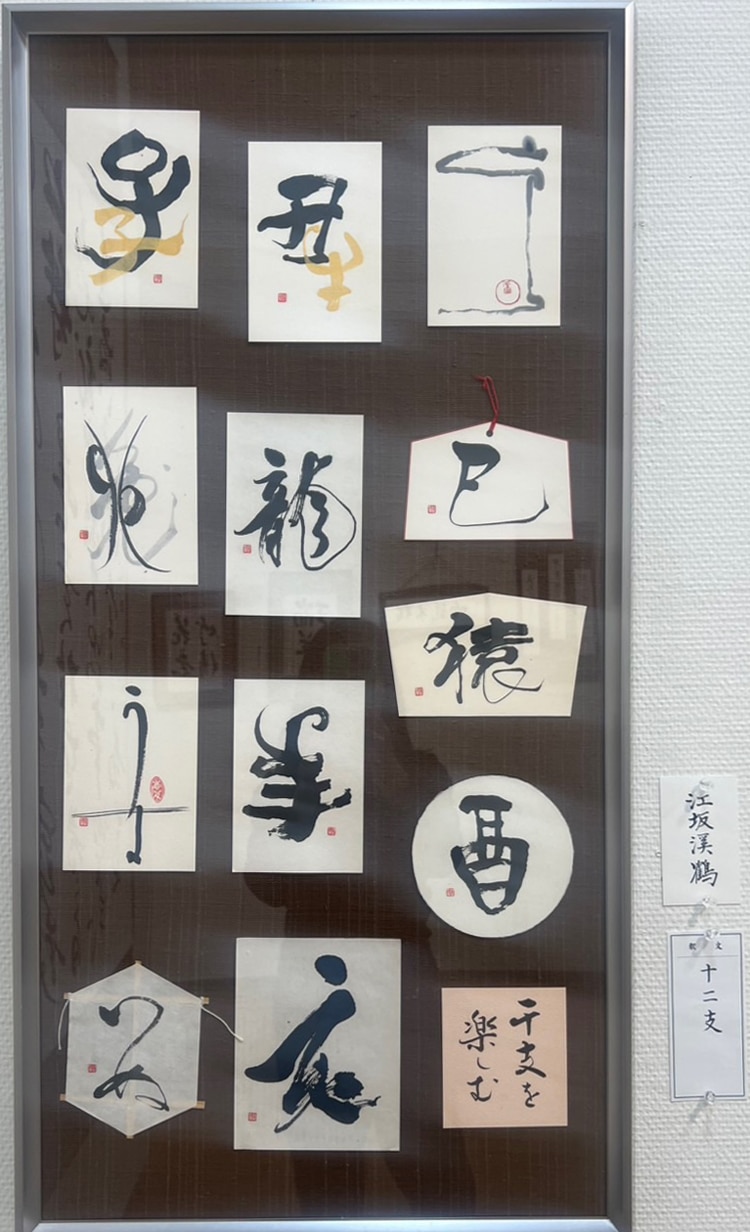 子
子
丑
牛
卯
龍
巳
猿
午
羊
酉
いぬ
亥
干支を
楽しむ
江坂渓鶴
釈文
十二支